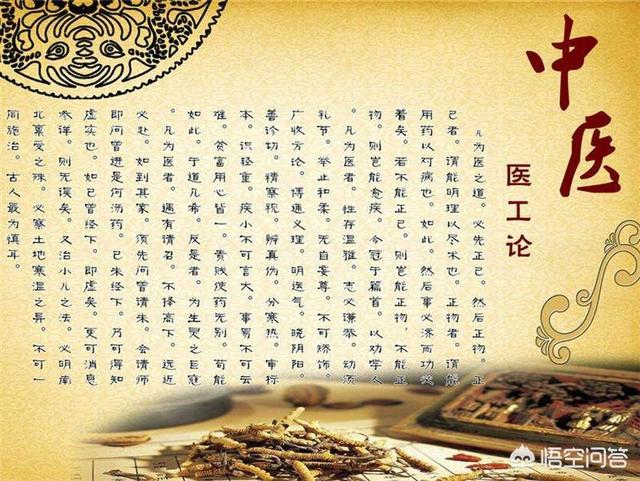 中医
医工论
凡为医之道。必先正己。然后正物。正
己者。谓能明理以尽术也。正物者。谓能
用药以对病也。如此。然后事必济而功必
着矣。若不能正己。则岂能正物。不能正
物。则岂能愈疾。今冠于篇首。以劝学人
。凡为医者。性存温雅。志必谦恭。动须
礼节。举止和柔。无自妄尊。不可矫饰。
广收方论。博通义理。明运气。晓阴阳。
善诊切。精察视。辨真伪。分寒热。审标
本。识轻重。疾小不可言大。事易不可云
难。贫富用心皆一。贵贱使药无别。苟能
如此。于道几希。反是者。为生灵之巨寇
。凡为医者。遇有请召。不择高下。远近
必赴。如到其家。须先问曾请未。会请师
即问曾进是何汤药。已未经下。乃可得知
虚实也。如已曾经下。即虚矣。更可消息
参详。则无误矣。又治小儿之法。必明南
北禀受之殊。必察土地寒温之异。不可一
同施治。古人最为慎耳。
悟空问答